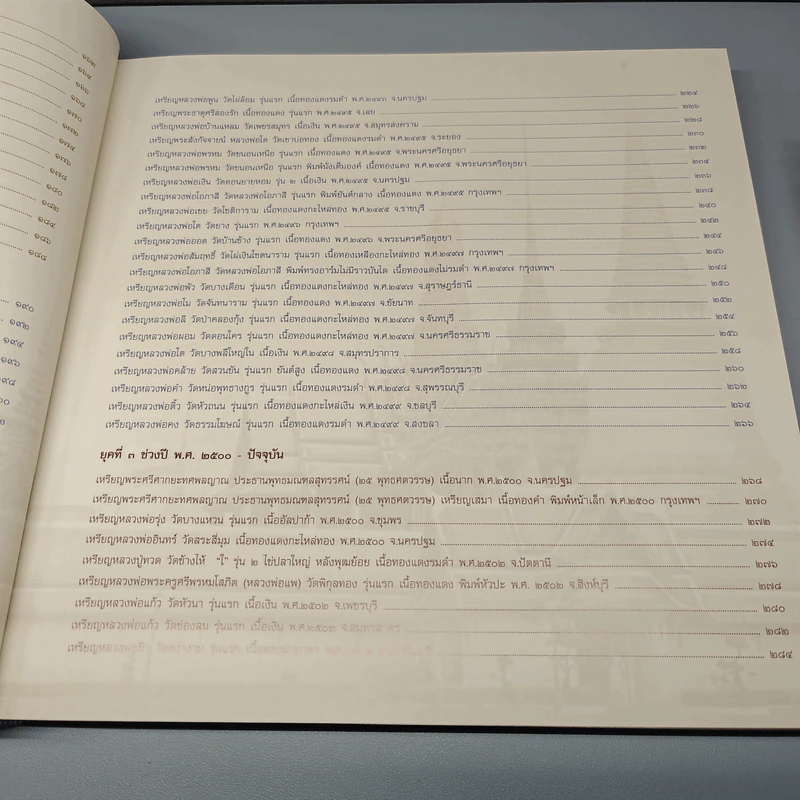 ๑๖๒
๑๖๔
๑๖๖
๑๖๘
๑๗๐
๑๗๒
๑๗๔
๑๗๖
๑๗๘
๑๘๐
๑๘๒
๑๘๔
๑๘๖
๑๘๘
๑๙๐
๑๙๒
๑๙๔
๑๙๖
๑๙๘
เหรียญหลวงพ่อพูน วัดไผ่ล้อม รุ่นแรก เนื้อทองแดงรมดำ พ.ศ.๒๔๙๓ จ.นครปฐม ๒๒๔
เหรียญพระธาตุศรีสองรัก เนื้อทองแดง รุ่นแรก พ.ศ.๒๔๙๕ จ.เลย ๒๒๖
เหรียญหลวงพ่อบ้านแหลม วัดเพชรสมุทร เนื้อเงิน พ.ศ.๒๔๙๕ จ.สมุทรสงคราม ๒๒๘
เหรียญพระสังกัจจายน์ หลวงพ่อโต วัดเขาบ่อทอง เนื้อทองแดงรมดำ พ.ศ.๒๔๙๕ จ.ระยอง ๒๓๐
เหรียญหลวงพ่อพรหม วัดขนอนเหนือ รุ่นแรก เนื้อทองแดง พ.ศ.๒๔๙๕ จ.พระนครศรีอยุธยา ๒๓๒
เหรียญหลวงพ่อพรหม วัดขนอนเหนือ รุ่นแรก พิมพ์นั่งเต็มองค์ เนื้อทองแดง พ.ศ.๒๔๙๕ จ.พระนครศรีอยุธยา ๒๓๔
เหรียญหลวงพ่อเงิน วัดดอนยายหอม รุ่น ๒ เนื้อเงิน พ.ศ.๒๔๙๕ จ.นครปฐม ๒๓๖
เหรียญหลวงพ่อโอภาสี วัดหลวงพ่อโอภาสี รุ่นแรก พิมพ์ยันต์กลาง เนื้อทองแดง พ.ศ.๒๔๙๕ กรุงเทพฯ ๒๓๘
เหรียญหลวงพ่อเชย วัดโชติการาม เนื้อทองแดงกะไหล่ทอง พ.ศ.๒๔๙๕ จ.ราชบุรี ๒๔๐
เหรียญหลวงพ่อโต วัดยาง รุ่นแรก พ.ศ.๒๔๙๖ กรุงเทพฯ ๒๔๒
เหรียญหลวงพ่อออด วัดบ้านช้าง รุ่นแรก เนื้อทองแดง พ.ศ.๒๔๙๖ จ.พระนครศรีอยุธยา ๒๔๔
เหรียญหลวงพ่อสัมฤทธิ์ วัดไผ่เงินโชตนาราม รุ่นแรก เนื้อทองเหลืองกะไหล่ทอง พ.ศ.๒๔๙๗ กรุงเทพฯ ๒๔๖
เหรียญหลวงพ่อโอภาสี วัดหลวงพ่อโอภาสี พิมพ์ทรงอาร์มไม่มีราวบันได เนื้อทองแดงไม่รมดำ พ.ศ.๒๔๙๗ กรุงเทพฯ ๒๔๘
เหรียญหลวงพ่อพัว วัดบางเดือน รุ่นแรก เนื้อทองแดงกะไหล่ทอง พ.ศ.๒๔๙๗ จ.สุราษฎร์ธานี ๒๕๐
เหรียญหลวงพ่อโม วัดจันทนาราม รุ่นแรก เนื้อทองแดง พ.ศ.๒๔๙๗ จ.ชัยนาท ๒๕๒
เหรียญหลวงพ่อลี วัดป่าคลองกุ้ง รุ่นแรก เนื้อทองแดงกะไหล่ทอง พ.ศ.๒๔๙๗ จ.จันทบุรี ๒๕๔
เหรียญหลวงพ่อผอม วัดดอนโคร รุ่นแรก เนื้อทองแดงกะไหล่ทอง พ.ศ.๒๔๙๗ จ.นครศรีธรรมราช ๒๕๖
เหรียญหลวงพ่อโต วัดบางพลีใหญ่ใน เนื้อเงิน พ.ศ.๒๔๙๘ จ.สมุทรปราการ ๒๕๘
เหรียญหลวงพ่อคล้าย วัดสวนขัน รุ่นแรก ยันต์สูง เนื้อทองแดง พ.ศ.๒๔๙๘ จ.นครศรีธรรมราช ๒๖๐
เหรียญหลวงพ่อคำ วัดหน่อพุทธางกูร รุ่นแรก เนื้อทองแดงรมดำ พ.ศ.๒๔๙๘ จ.สุพรรณบุรี ๒๖๒
เหรียญหลวงพ่อติ้ว วัดหัวถนน รุ่นแรก เนื้อทองแดงกะไหล่เงิน พ.ศ.๒๔๙๙ จ.ชลบุรี ๒๖๔
เหรียญหลวงพ่อคง วัดธรรมโฆษณ์ รุ่นแรก เนื้อทองแดงรมดำ พ.ศ.๒๔๙๙ จ.สงขลา ๒๖๖
ยุคที่ ๓ ช่วงปี พ.ศ. ๒๕๐๐ - ปัจจุบัน
เหรียญพระศรีศากยะทศพลญาณ ประธานพุทธมณฑลสุทรรศน์ (๒๕ พุทธศตวรรษ) เนื้อนาก พ.ศ.๒๕๐๐ จ.นครปฐม ๒๖๘
เหรียญพระศรีศากยะทศพลญาณ ประธานพุทธมณฑลสุทรรศน์ (๒๕ พุทธศตวรรษ) เหรียญเสมา เนื้อทองคำ พิมพ์หน้าเล็ก พ.ศ.๒๕๐๐ กรุงเทพฯ ๒๗๐
เหรียญหลวงพ่อรุ่ง วัดบางแหวน รุ่นแรก เนื้ออัลปาก้า พ.ศ.๒๕๐๐ จ.ชุมพร ๒๗๒
เหรียญหลวงพ่ออินทร์ วัดสระสี่มุม เนื้อทองแดงกะไหล่ทอง พ.ศ.๒๕๐๐ จ.นครปฐม ๒๗๔
เหรียญหลวงปู่ทวด วัดช้างไห้ "ใ" รุ่น ๒ ไข่ปลาใหญ่ หลังพุฒย้อย เนื้อทองแดงรมดำ พ.ศ.๒๕๐๒ จ.ปัตตานี ๒๗๖
เหรียญหลวงพ่อพระครูศรีพรหมโสภิต (หลวงพ่อแพ) วัดพิกุลทอง รุ่นแรก เนื้อทองแดง พิมพ์หัวปะ พ.ศ. ๒๕๐๒ จ.สิงห์บุรี ๒๗๘
เหรียญหลวงพ่อแก้ว วัดหัวนา รุ่นแรก เนื้อเงิน พ.ศ.๒๕๐๒ จ.เพชรบุรี ๒๘๐
เหรียญหลวงพ่อแก้ว วัดช่องลม รุ่นแรก เนื้อเงิน พ.ศ.๒๕๐๒ จ.สมุทรสาคร ๒๘๒
เหรียญหลวงพ่อ รุ่นแรก ๒๘๔